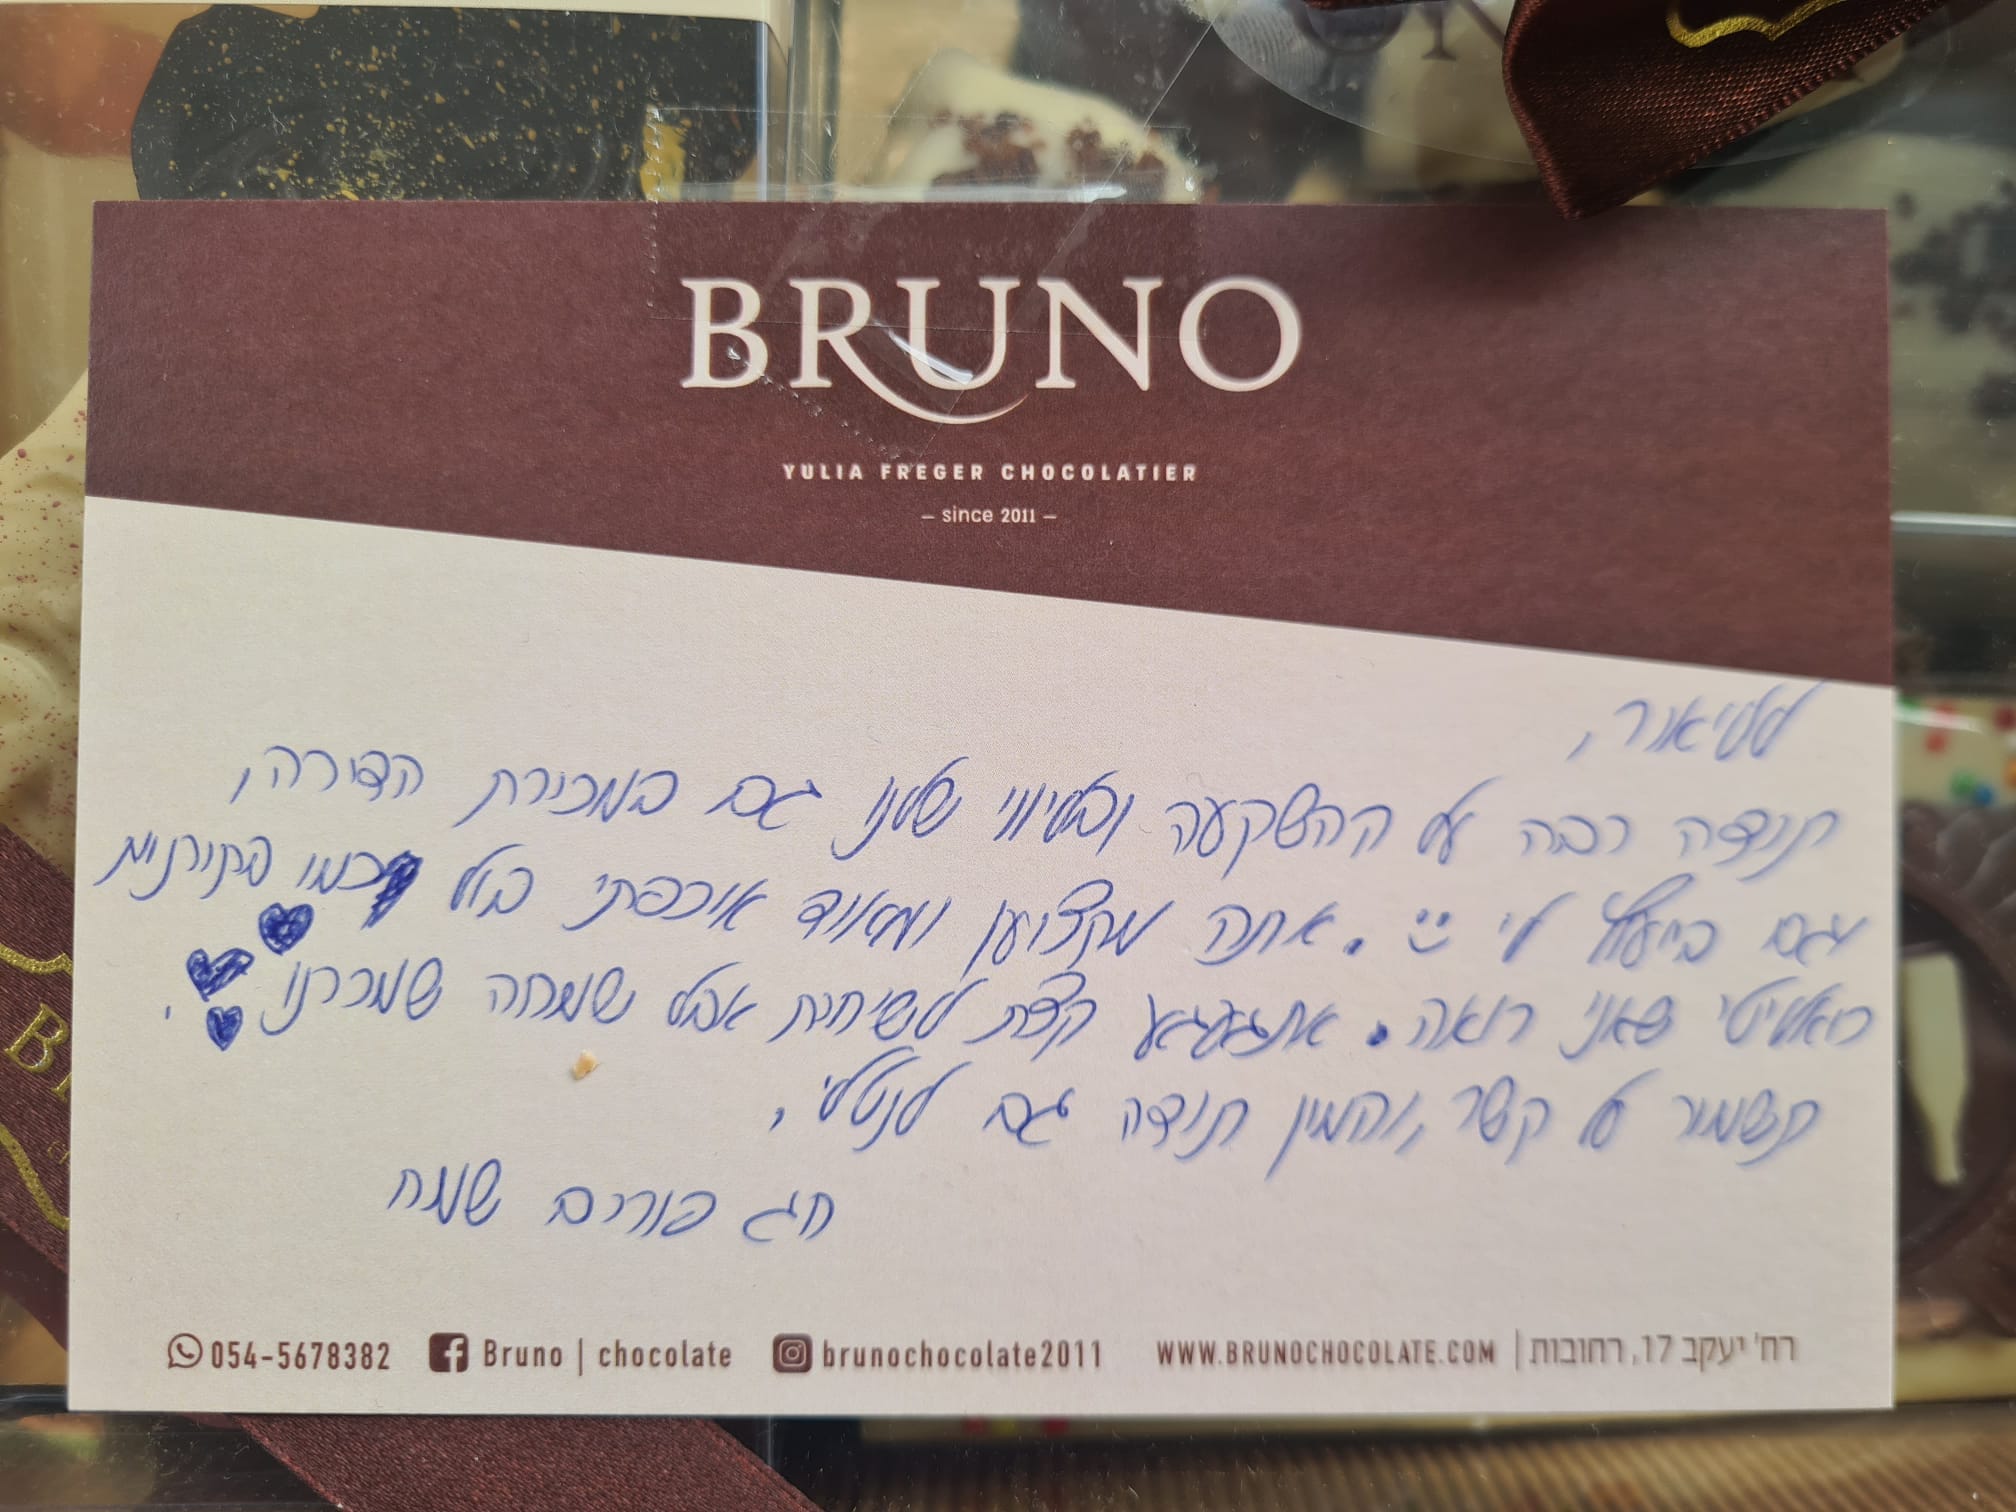 BRUNO
YULIA FREGER CHOCOLATIER
– since 2011 –
לליאור,
תודה רבה על ההשקעה ובליווי שלנו גם במכירת הדירה,
וגם בייעוץ לי :) . אתה מקצוען ומאוד אכפתי בלל כמו פתרונות
שאני רואה. אתגעגע קצת לשיחות אבל שמחה שמכרנו
תשמור על קשר, והמון תודה גם לנטלי,
חג פורים שמח
054-5678382 Bruno | chocolate brunochocolate2011 WWW.BRUNOCHOCOLATE.COM | רח' יעקב 17, רחובות